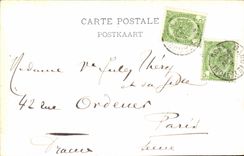 CARTE POSTALE
POSTKAART
Madame Vve Jules Théry
et sa fille
42 rue Ordener
Paris
France Seine